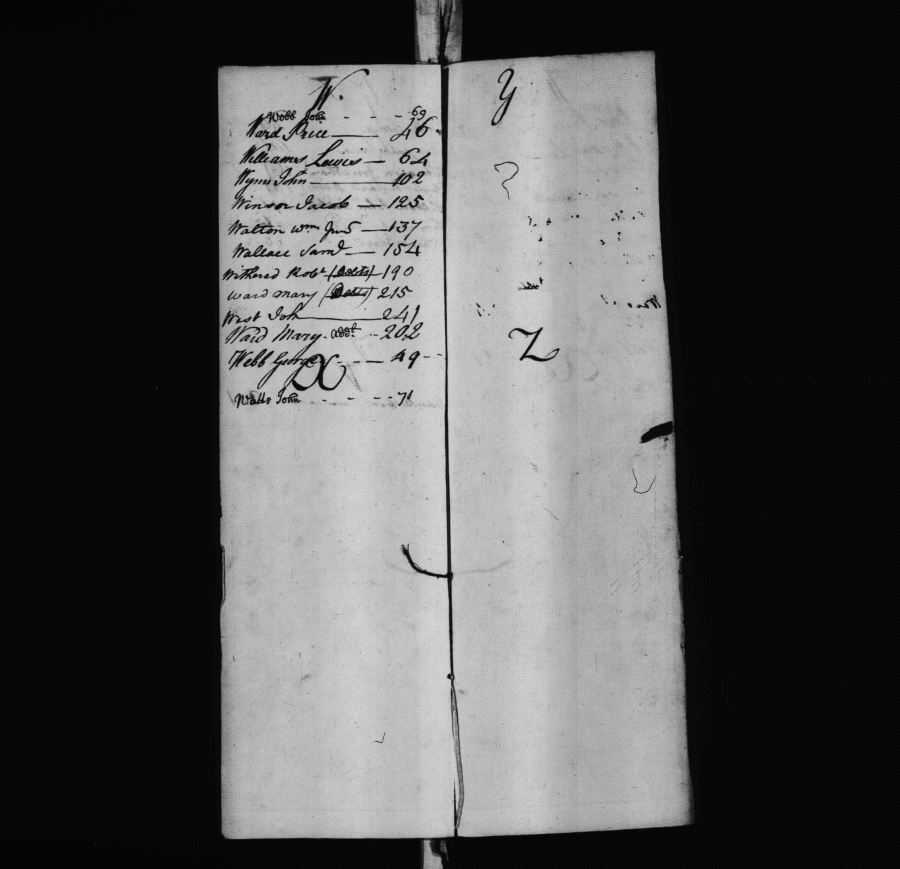 W.
Webb John - - - 69
Ward Price — 46
Williams Lewis — 64
Wynn John — 102
Winsor Jacob — 125
Walton Wm Junr — 137
Wallace Saml — 154
Withered Robt (Debts) 190
Ward Mary (Debts) 215
West Joh — 241
Ward Mary - addl - 202
Webb George - - - 49 - -
X
Watts John - - - - 71
Y
Z